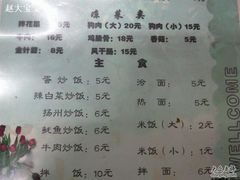 赵大宝
凉菜类
拌花菜 5元 狗肉(大)20元 狗肉(小)15元
牛肉 16元 鸡胗骨:18元 香菇:5元
金针菇:8元 风干肠:15元
主食
蛋炒饭:5元 冷面:5元
辣白菜炒饭:5元 热面:5元
扬州炒饭:6元 米饭(大):2元
鱿鱼炒饭:6元
牛肉炒饭:6元 米饭(小):1元
拌饭:10元 拌面:6元
WELLCOME